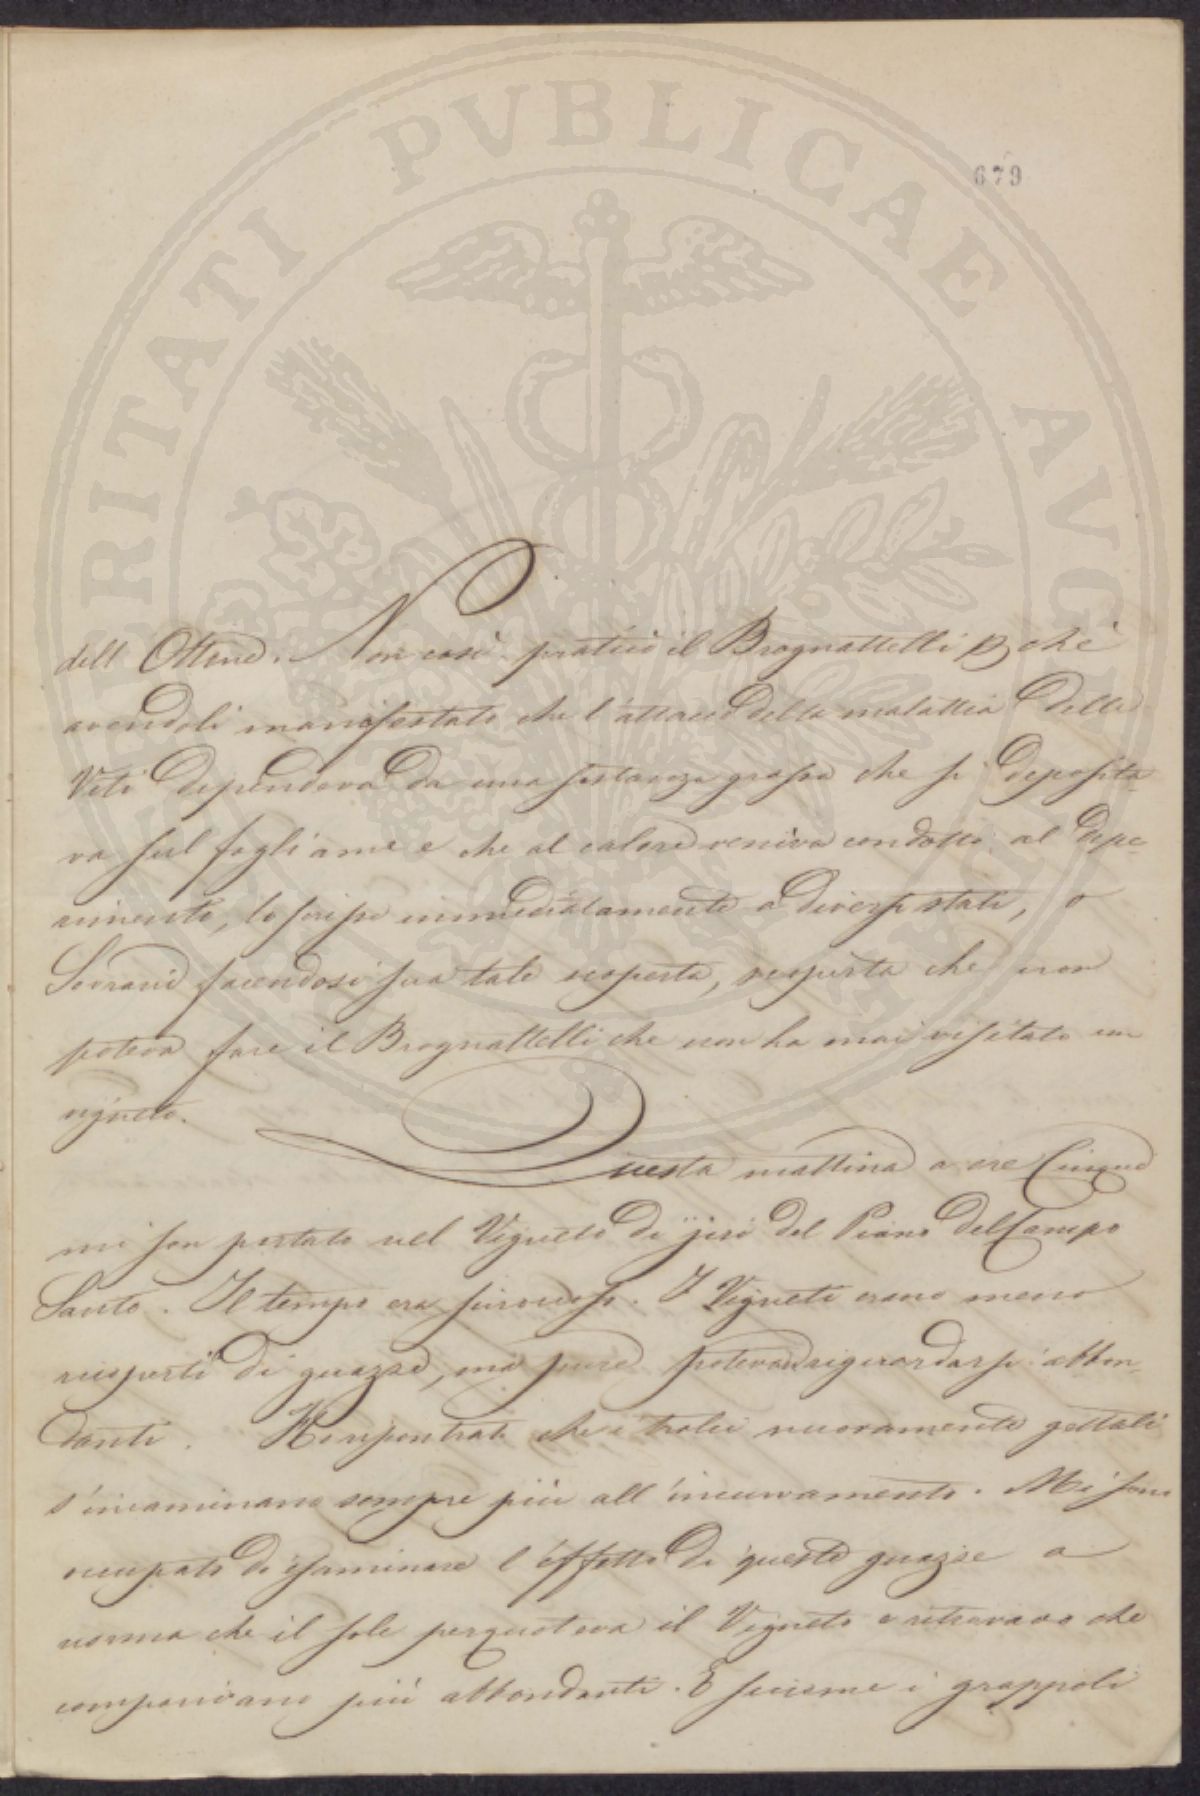 PVBLICAE
679
dell Ottene. Non così praticò il Brognattelli che
avendoli manifestato che l'attacco della malattia delle
Viti dipendeva da una sostanza grassa che si deposita-
va sul fogliame e che al calore veniva condotta al depe-
rimento, lo scrisse immediatamente a diversi stati, e
Sovrani facendosi sua tale scoperta, scoperta che non
poteva fare il Brognattelli che non ha mai visitato un
vigneto.
Questa mattina a ore Cinque
mi son portato nel Vigneto di jeri del Piano del Campo
Santo. Il tempo era sciroccoso. I Vigneti erano meno
ricoperti di guazze, ma pure potevano riguardarsi abbon-
danti. Ho riscontrato che i tralci nuovamente gettati
s'incaminano sempre più all'incurvamento. Mi sono
occupato di esaminare l'effetto di queste guazze a
norma che il sole perquoteva il Vigneto e ritrovavo che
comparivano più abbondanti. E siccome i grappoli